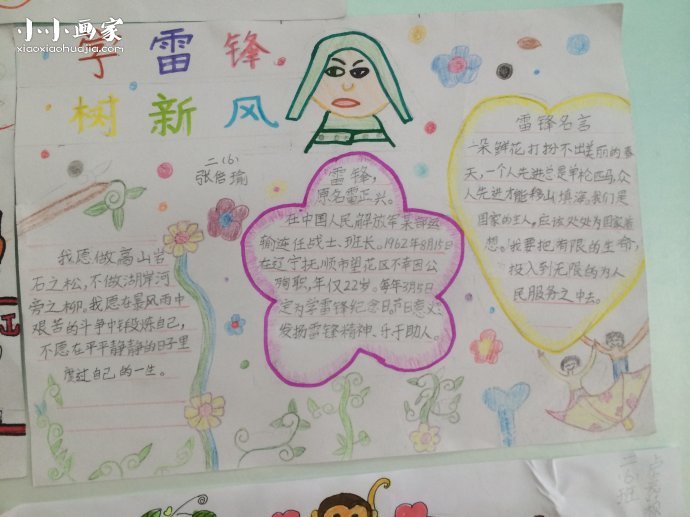 小小画家
xiaoxiaohuajia.com
学雷锋
树新风
二(6)
雷锋，
原名雷正兴。
在中国人民解放军某部运
输连任战士、班长。1962年8月15日
在辽宁抚顺市望花区不幸因公
殉职，年仅22岁。每年3月5日
定为学雷锋纪念日。节日意义：
发扬雷锋精神、乐于助人。
雷锋名言
一朵鲜花打扮不出美丽的春
天，一个人先进总是单松匹马，众
人先进才能移山填海。我们是
国家的主人，应该处处为国家着
想。我要把有限的生命，
投入到无限的为人
民服务之中去。
我愿做高山岩
石之松，不做湖岸河
旁之柳。我愿在暴风雨中
艰苦的斗争中锻炼自己，
不愿在平平静静的日子里
度过自己的一生。